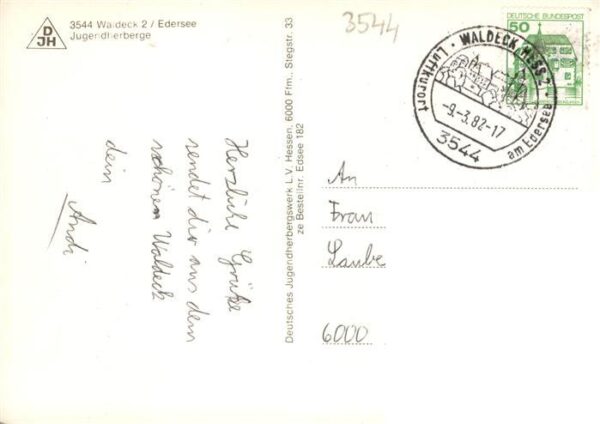 D
JH
3544 Waldeck 2 / Edersee
Jugendherberge
3544
DEUTSCHE BUNDESPOST
50
Luftkurort · WALDECK, HESS 2 ·
-9.-3.82-17
am Edersee
3544
Deutsches Jugendherbergswerk L.V. Hessen, 6000 Ffm., Stegstr. 33
ze Bestellnr. Edsee 182
Herzliche Grüße
sendet dir aus dem
schönen Waldeck
dein
Andi
An
Frau
Laube
6000